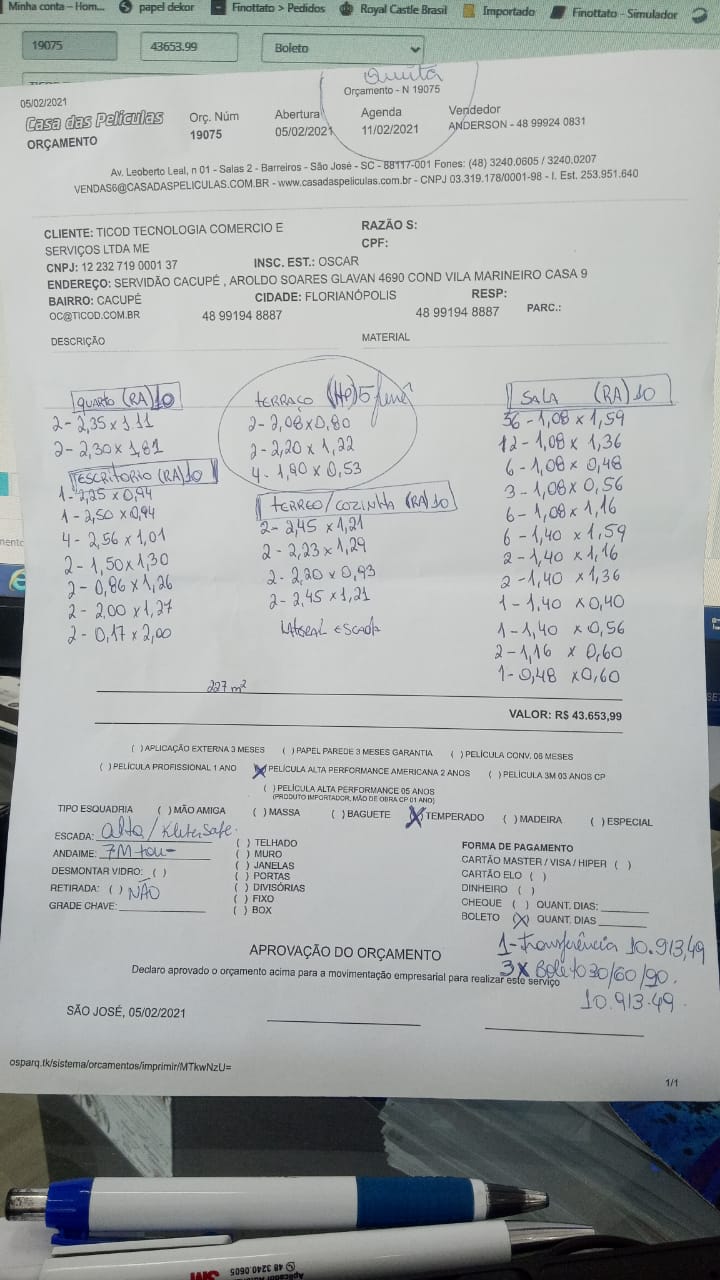 Minha conta – Hom...
papel dekor
Finottato > Pedidos
Royal Castle Brasil
Importado
Finottato - Simulador
19075
43653.99
Boleto
Quinta
Orçamento - N 19075
05/02/2021
Casa das Películas
ORÇAMENTO
Orç. Núm
19075
Abertura
05/02/2021
Agenda
11/02/2021
Vendedor
ANDERSON - 48 99924 0831
Av. Leoberto Leal, n 01 - Salas 2 - Barreiros - São José - SC - 88117-001 Fones: (48) 3240.0605 / 3240.0207
VENDAS6@CASADASPELICULAS.COM.BR - www.casadaspeliculas.com.br - CNPJ 03.319.178/0001-98 - I. Est. 253.951.640
CLIENTE: TICOD TECNOLOGIA COMERCIO E
SERVIÇOS LTDA ME
RAZÃO S:
CPF:
CNPJ: 12 232 719 0001 37
INSC. EST.: OSCAR
ENDEREÇO: SERVIDÃO CACUPÉ , AROLDO SOARES GLAVAN 4690 COND VILA MARINEIRO CASA 9
BAIRRO: CACUPÉ
CIDADE: FLORIANÓPOLIS
RESP:
OC@TICOD.COM.BR
48 99194 8887
48 99194 8887
PARC.:
DESCRIÇÃO
MATERIAL
QUARTO (RA) 10
2 - 2,35 x 1,11
2 - 2,30 x 1,81
ESCRITORIO (RA) 10
1 - 2,25 x 0,94
1 - 2,50 x 0,94
4 - 2,56 x 1,01
2 - 1,50 x 1,30
2 - 0,86 x 1,26
2 - 2,00 x 1,27
2 - 0,17 x 2,00
TERRAÇO (HP) 5 fumê
2 - 2,08 x 0,80
2 - 2,20 x 1,22
4 - 1,90 x 0,53
TERREO / COZINHA (RA) 10
2 - 2,45 x 1,21
2 - 2,23 x 1,29
2 - 2,20 x 0,93
2 - 2,45 x 1,21
LATERAL ESCADA
SALA (RA) 10
36 - 1,08 x 1,59
12 - 1,08 x 1,36
6 - 1,08 x 0,48
3 - 1,08 x 0,56
6 - 1,08 x 1,16
6 - 1,40 x 1,59
2 - 1,40 x 1,16
2 - 1,40 x 1,36
1 - 1,40 x 0,40
1 - 1,40 x 0,56
2 - 1,16 x 0,60
1 - 0,48 x 0,60
227 m²
VALOR: R$ 43.653,99
( ) APLICAÇÃO EXTERNA 3 MESES ( ) PAPEL PAREDE 3 MESES GARANTIA ( ) PELÍCULA CONV. 06 MESES
( ) PELÍCULA PROFISSIONAL 1 ANO (X) PELÍCULA ALTA PERFORMANCE AMERICANA 2 ANOS ( ) PELÍCULA 3M 03 ANOS CP
( ) PELÍCULA ALTA PERFORMANCE 05 ANOS
(PRODUTO IMPORTADOR, MÃO DE OBRA CP 01 ANO)
TIPO ESQUADRIA ( ) MÃO AMIGA ( ) MASSA ( ) BAGUETE (X) TEMPERADO ( ) MADEIRA ( ) ESPECIAL
ESCADA: Alta /
ANDAIME: 7M
DESMONTAR VIDRO: ( )
RETIRADA: ( ) NÃO
GRADE CHAVE:
( ) TELHADO
( ) MURO
( ) JANELAS
( ) PORTAS
( ) DIVISÓRIAS
( ) FIXO
( ) BOX
FORMA DE PAGAMENTO
CARTÃO MASTER / VISA / HIPER ( )
CARTÃO ELO ( )
DINHEIRO ( )
CHEQUE ( ) QUANT. DIAS:
BOLETO (X) QUANT. DIAS
1 - Transferência 10.913,49
3x Boleto 30/60/90.
10.913.49
APROVAÇÃO DO ORÇAMENTO
Declaro aprovado o orçamento acima para a movimentação empresarial para realizar este serviço
SÃO JOSÉ, 05/02/2021
osparq.tk/sistema/orcamentos/imprimir/MTkwNzU=
1/1
48 3240.0605
3M